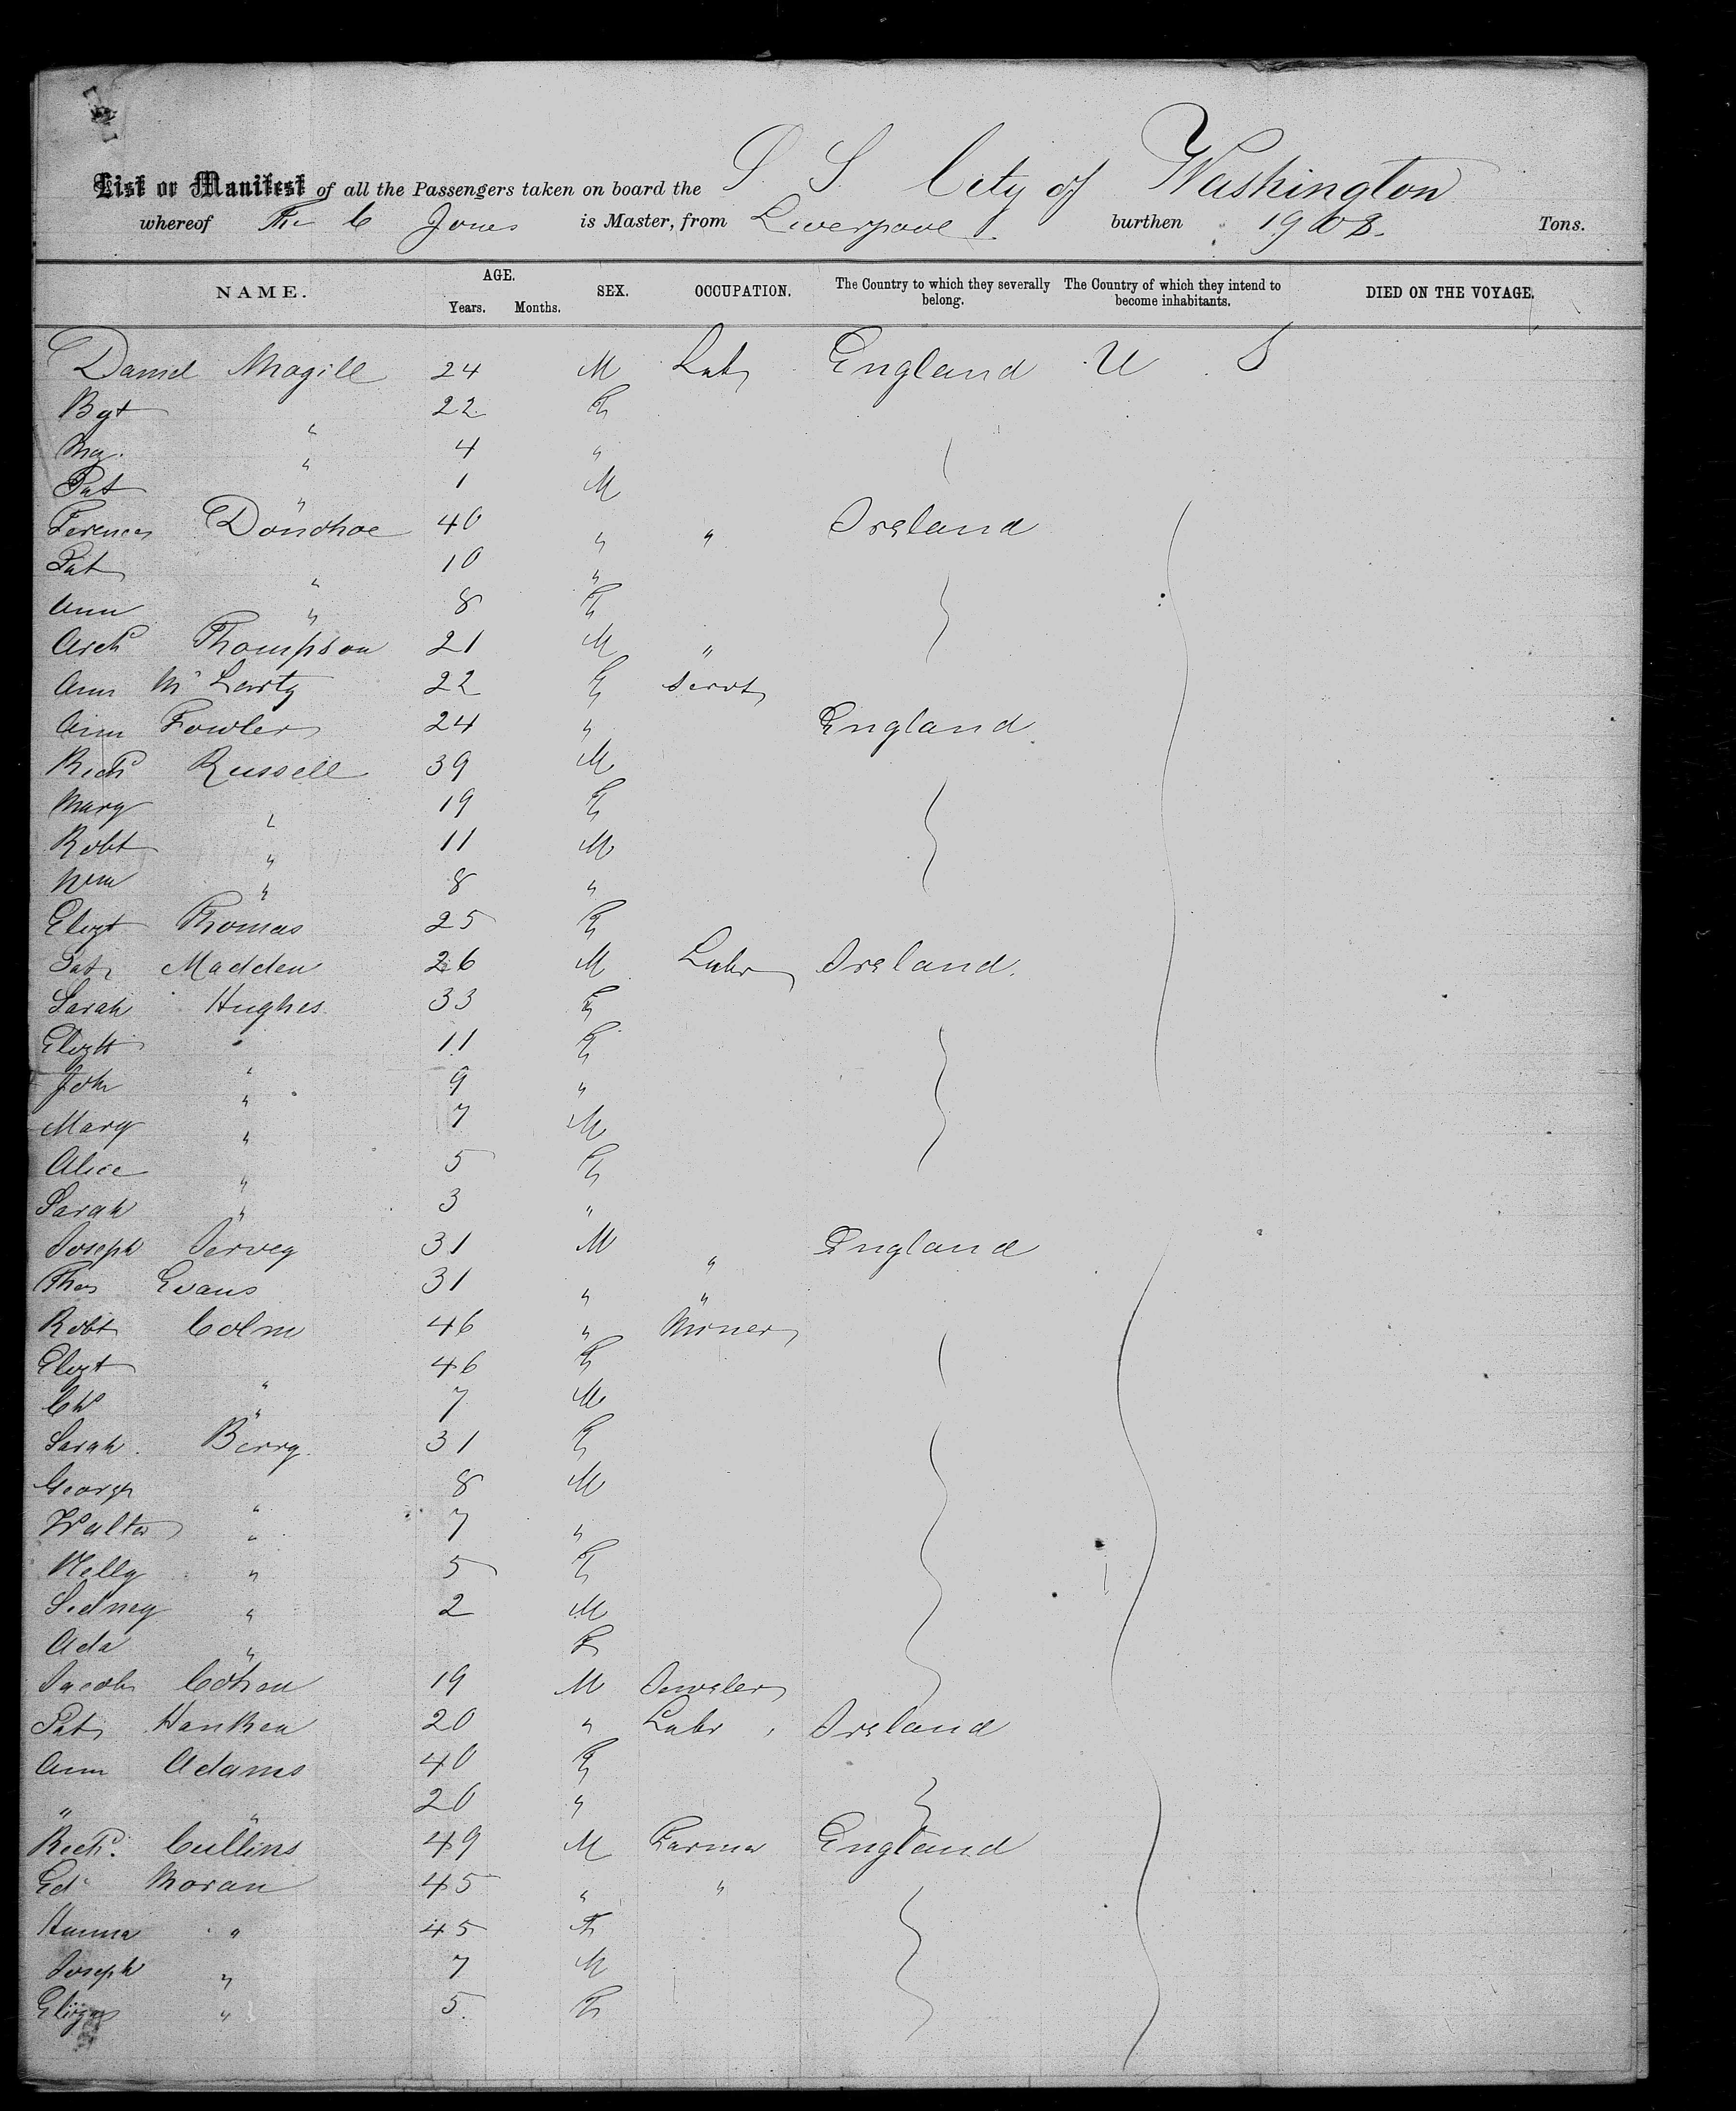 List or Manifest of all the Passengers taken on board the S S City of Washington
whereof Thos C Jones is Master, from Liverpool burthen Tons.
NAME. AGE. Years. Months. SEX. OCCUPATION. The Country to which they severally belong. The Country of which they intend to become inhabitants. DIED ON THE VOYAGE.
Daniel Magill 24 M Labr England U S
Bgt " 22 F
My. " 4 "
Pat " 1 M
Terence Donohoe 40 " " Ireland
Pat " 10 "
Ann " 8 F
Archd Thompson 21 M "
Ann Mc Larty 22 F Servt
Ann Fowler 24 " England
Richd Russell 39 M
Mary " 19 F
Robt " 11 M
Wm " 8 "
Elizt Thomas 25 F
Pat Madden 26 M Labr Ireland.
Sarah Hughes 33 F
Elizth " 11 F
John " 9 "
Mary " 7 M
Alice " 5 F
Sarah " 3 "
Joseph Jervey 31 M " England
Thos Evans 31 " "
Robt Colm 46 " Miner
Elizt " 46 F
Chs " 7 M
Sarah Berry 31 F
George " 8 M
Walter " 7 "
Nelly " 5 F
Sidney " 2 M
Ada " F
Jacob Cohen 19 M Jeweler
Pat 20 " Labr Ireland
Ann Adams 40 F
" " 20 "
Richd. Cullins 49 M Farmer England
Ed Moran 45 " "
Hanna " 45 F
Joseph " 7 M
Eliza " 5 F